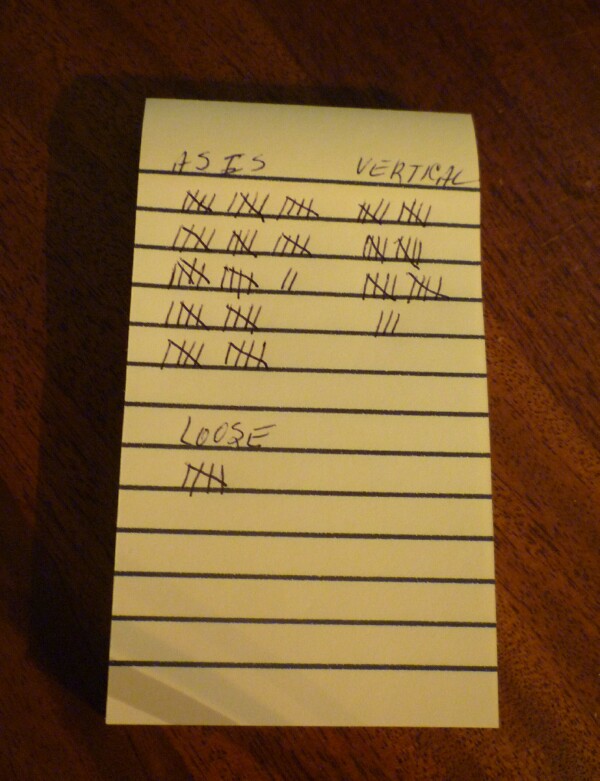 AS IS VERTICAL
𝍸 𝍸 𝍸 𝍸 𝍸
𝍸 𝍸 𝍸 𝍸 𝍸
𝍸 𝍸 || 𝍸 𝍸
𝍸 𝍸 |||
𝍸 𝍸
LOOSE
𝍸